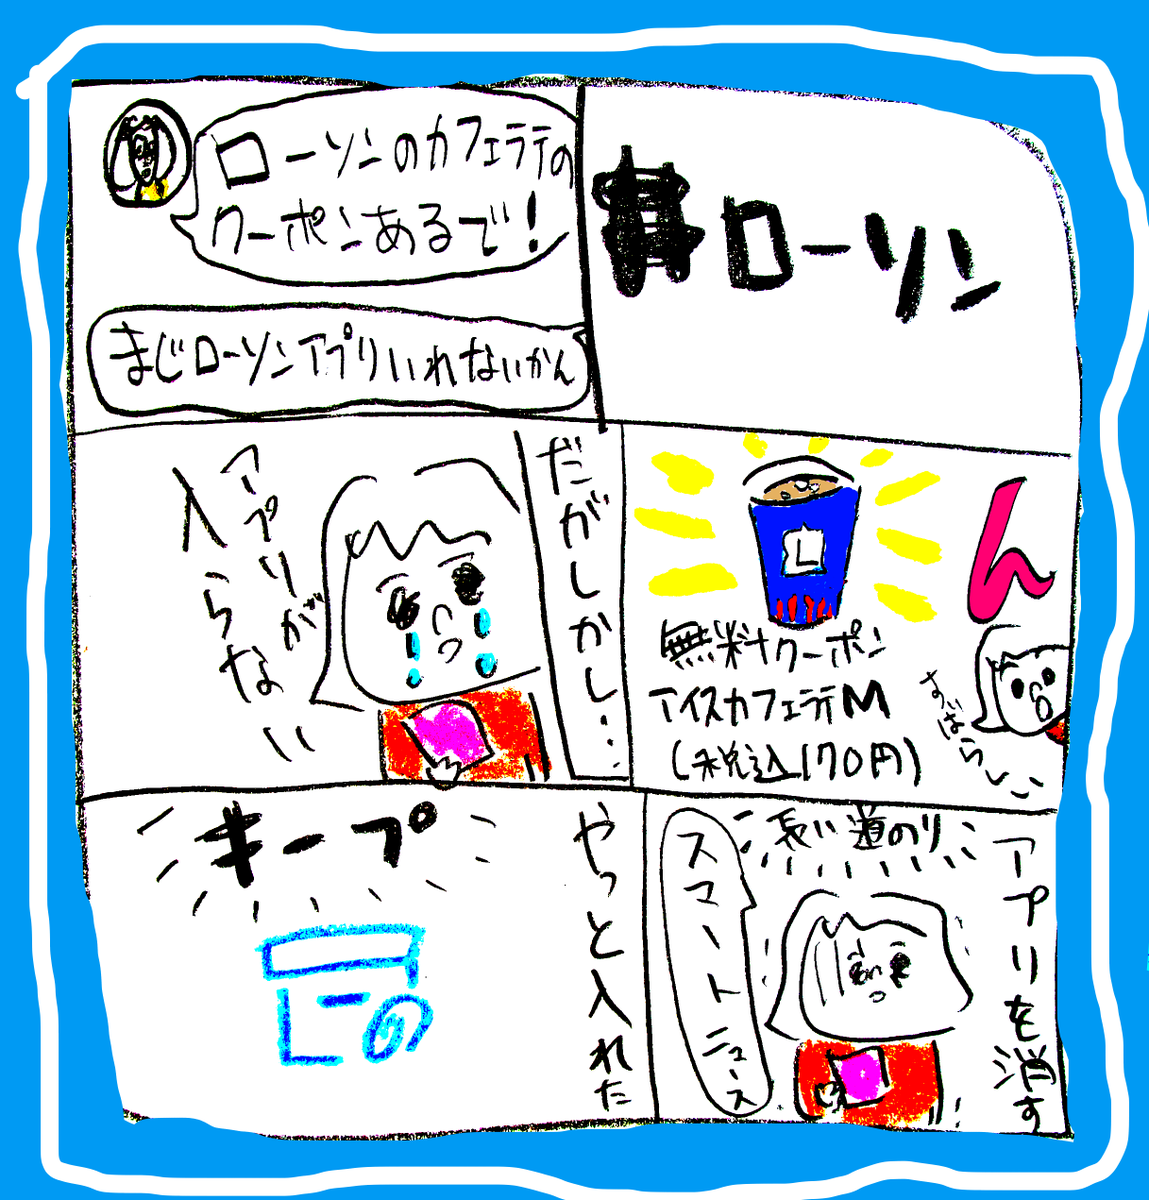 ローソン
ローソンのカフェラテの
クーポンあるで！
まじローソンアプリいれないかん
ん
L
無料クーポン
アイスカフェラテM
(税込170円)
すばらしい
だがしかし・・・
アプリが
入らない
アプリを消す
長い道のり
スマートニュース
やっと入れた
キープ